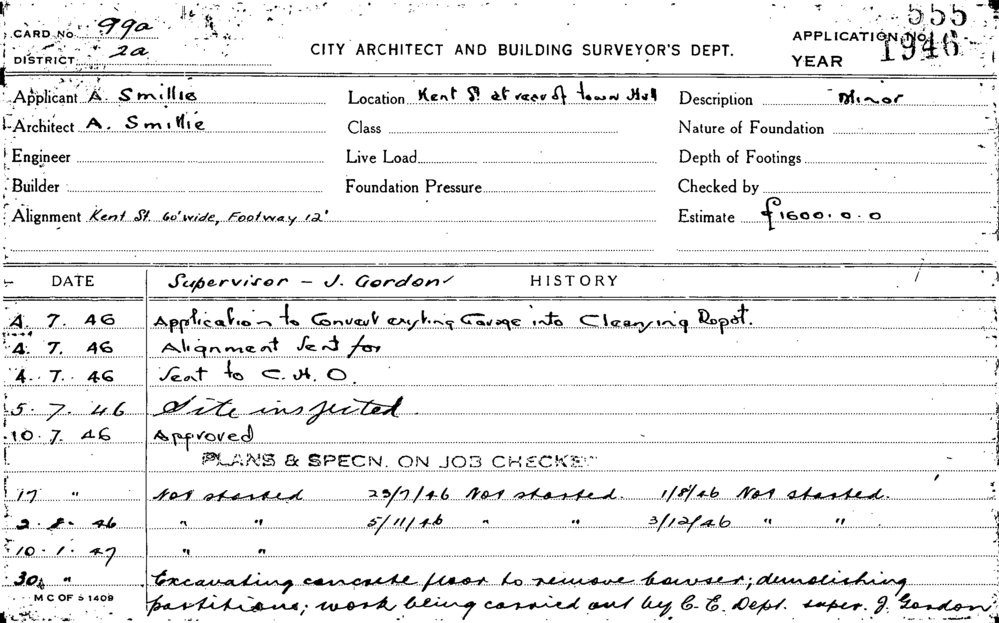 CARD No 99a
DISTRICT 2a
CITY ARCHITECT AND BUILDING SURVEYOR'S DEPT.
APPLICATION No 555
YEAR 1946
Applicant A. Smillie Location Kent St. at rear of Town Hall Description Minor
Architect A. Smillie Class Nature of Foundation
Engineer Live Load Depth of Footings
Builder Foundation Pressure Checked by
Alignment Kent St. 60' wide, Footway 12' Estimate £1600.0.0
DATE Supervisor - J. Gordon HISTORY
4. 7. 46 Application to Convert existing Garage into Cleansing Depot.
4. 7. 46 Alignment Sent for
4. 7. 46 Sent to C. H. O.
5. 7. 46 Site inspected.
10. 7. 46 Approved
PLANS & SPECN. ON JOB CHECKED
17 " Not started 23/7/46 Not started. 1/8/46 Not started.
2. 8. 46 " " 5/11/46 " " 3/12/46 " "
10. 1. 47 " "
30. " Excavating concrete floor to remove bowser; demolishing
partitions; work being carried out by C. E. Dept. super. J. Gordon
M C OF S 1409